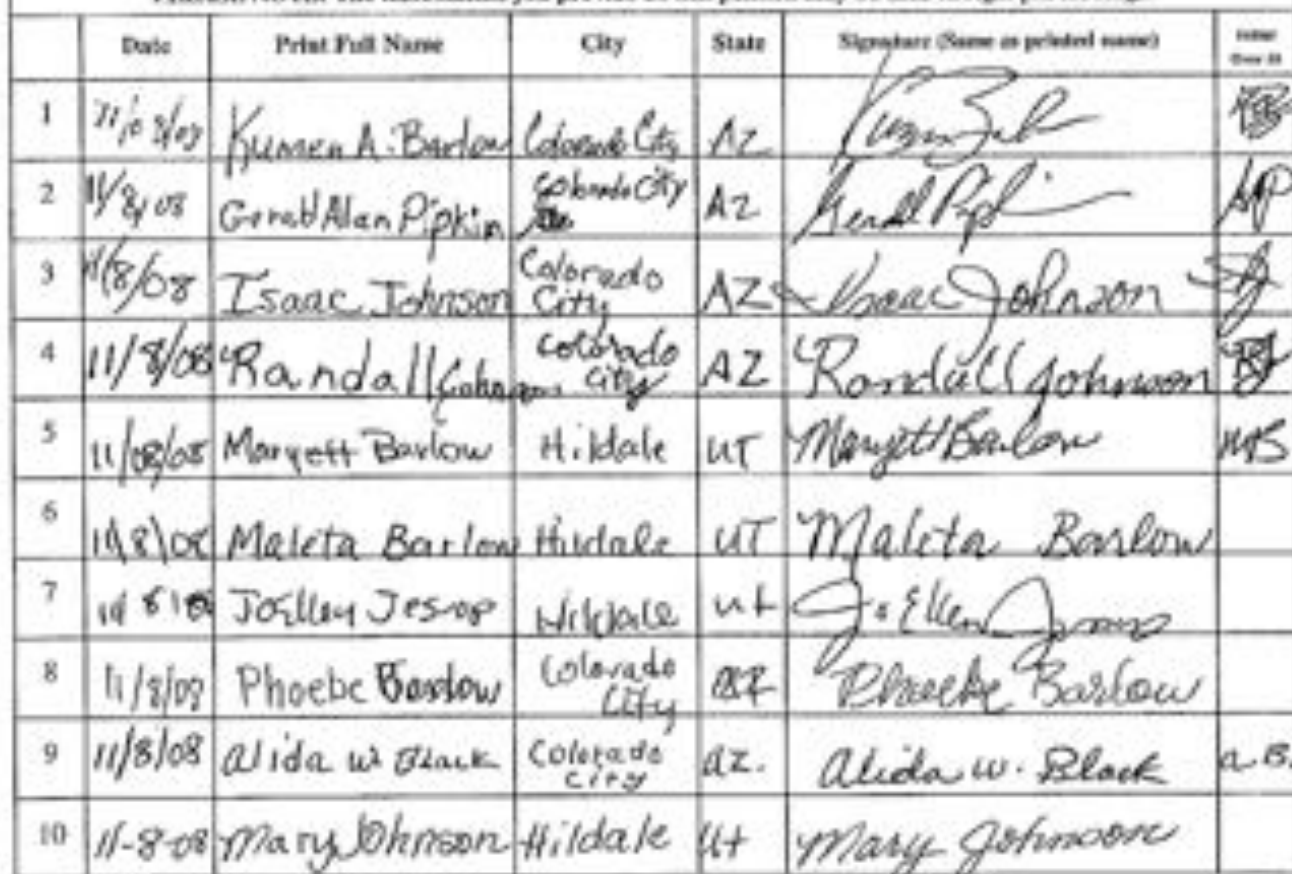 The information you provide on this petition may be used
Date Print Full Name City State Signature (Same as printed name) Initial Over 18
1 11/08/08 Kumen A. Barlow Colorado City AZ
2 11/8/08 Gerald Alan Pipkin Colorado City AZ Gerald Pipkin GAP
3 11/8/08 Isaac Johnson Colorado City AZ Isaac Johnson IJ
4 11/8/08 Randall Johnson Colorado City AZ Randall Johnson RJ
5 11/08/08 Maryett Barlow Hildale UT Maryett Barlow MB
6 11/8/08 Maleta Barlow Hildale UT Maleta Barlow
7 11/8/08 JoEllen Jessop Hildale ut JoEllen Jessop
8 11/8/08 Phoebe Barlow Colorado City AZ Phoebe Barlow
9 11/8/08 Alida W Black Colorado City az. Alida W. Black a.B.
10 11-8-08 Mary Johnson Hildale Ut Mary Johnson